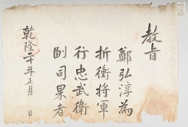 教旨
鄭弘淳為
折衝將軍
行忠武衛
副司果者
乾隆二十年正月 日